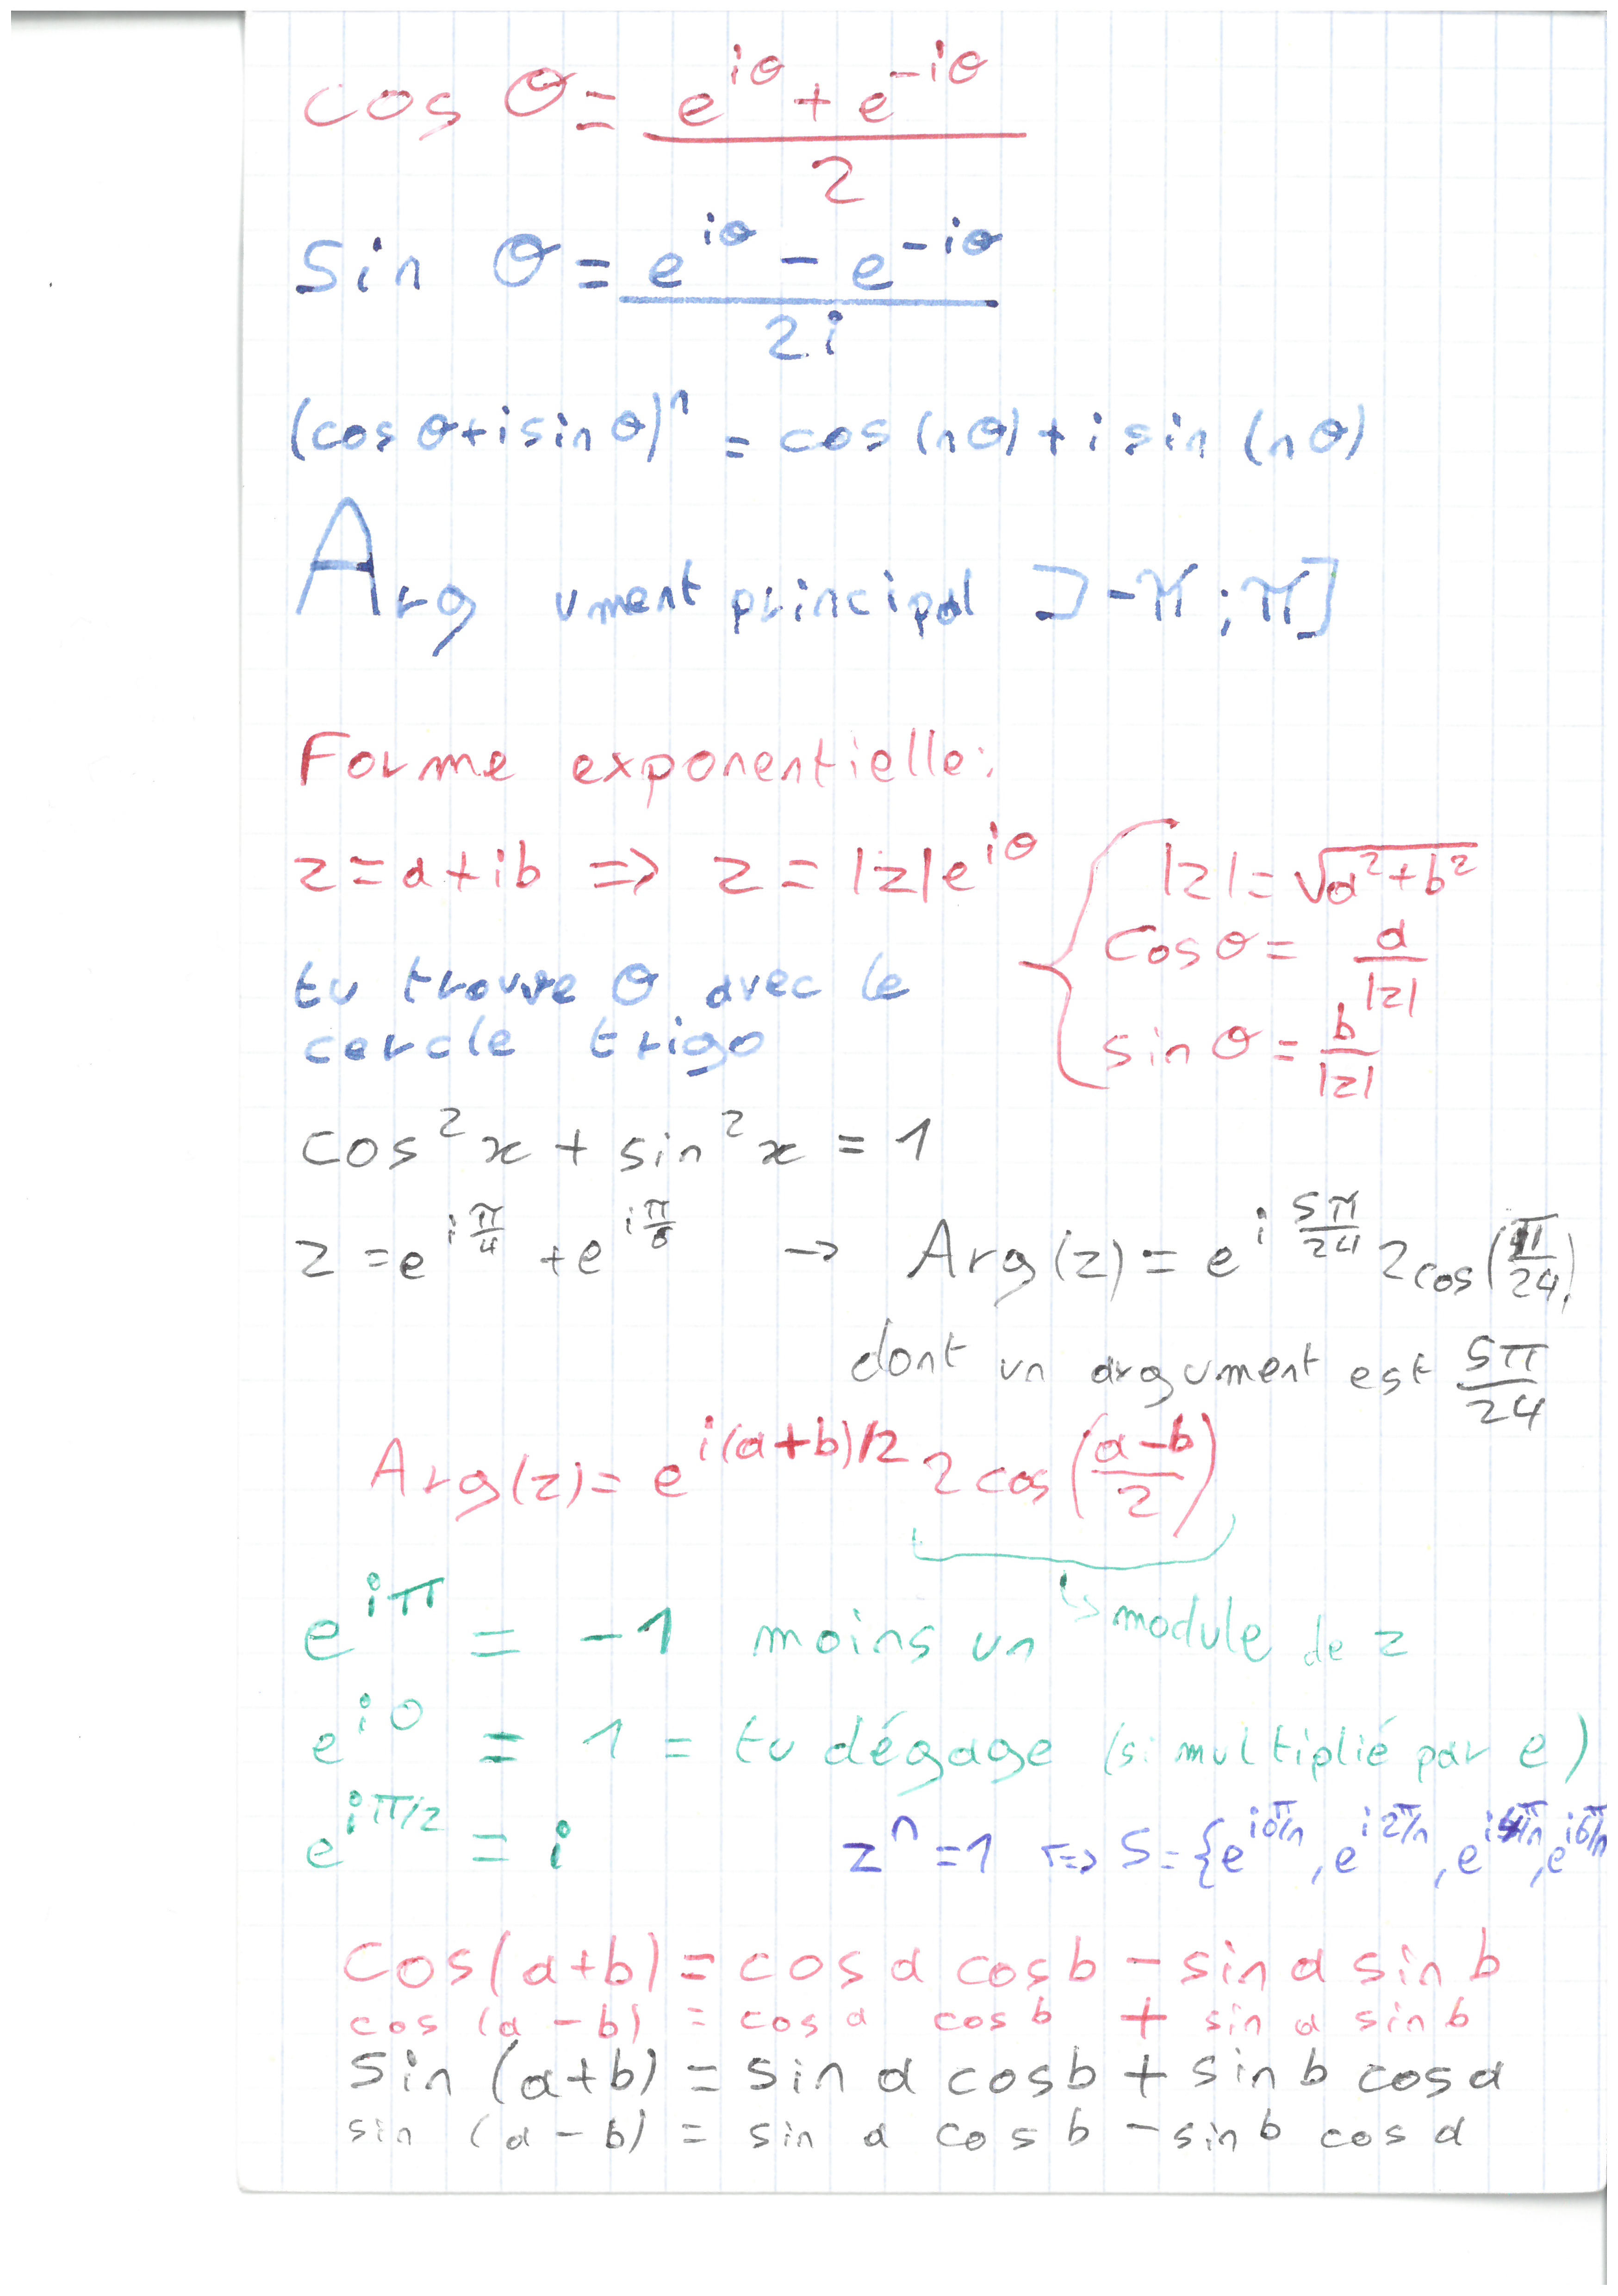 cos θ = (e^{iθ} + e^{-iθ}) / 2
sin θ = (e^{iθ} - e^{-iθ}) / 2i
(cos θ + i sin θ)^n = cos (nθ) + i sin (nθ)
Arg ument principal ]-π ; π]
Forme exponentielle:
z = a + ib ⇒ z = |z|e^{iθ} { |z| = √(a² + b²)
cos θ = a/|z|
tu trouve θ avec le
cercle trigo
sin θ = b/|z|
cos² x + sin² x = 1
z = e^{iπ/4} + e^{iπ/6} → Arg(z) = e^{i5π/24} 2cos(π/24)
dont un argument est 5π/24
Arg(z) = e^{i(a+b)/2} 2 cos((a-b)/2)
↳ module de z
e^{iπ} = -1 moins un
e^{i0} = 1 = tu dégage (si multiplié par e)
e^{iπ/2} = i z^n = 1 ⇔ S = {e^{i0π/n}, e^{i2π/n}, e^{i4π/n}, e^{i6π/n}
cos(a+b) = cos a cos b - sin a sin b
cos (a - b) = cos a cos b + sin a sin b
sin (a+b) = sin a cos b + sin b cos a
sin (a - b) = sin a cos b - sin b cos a